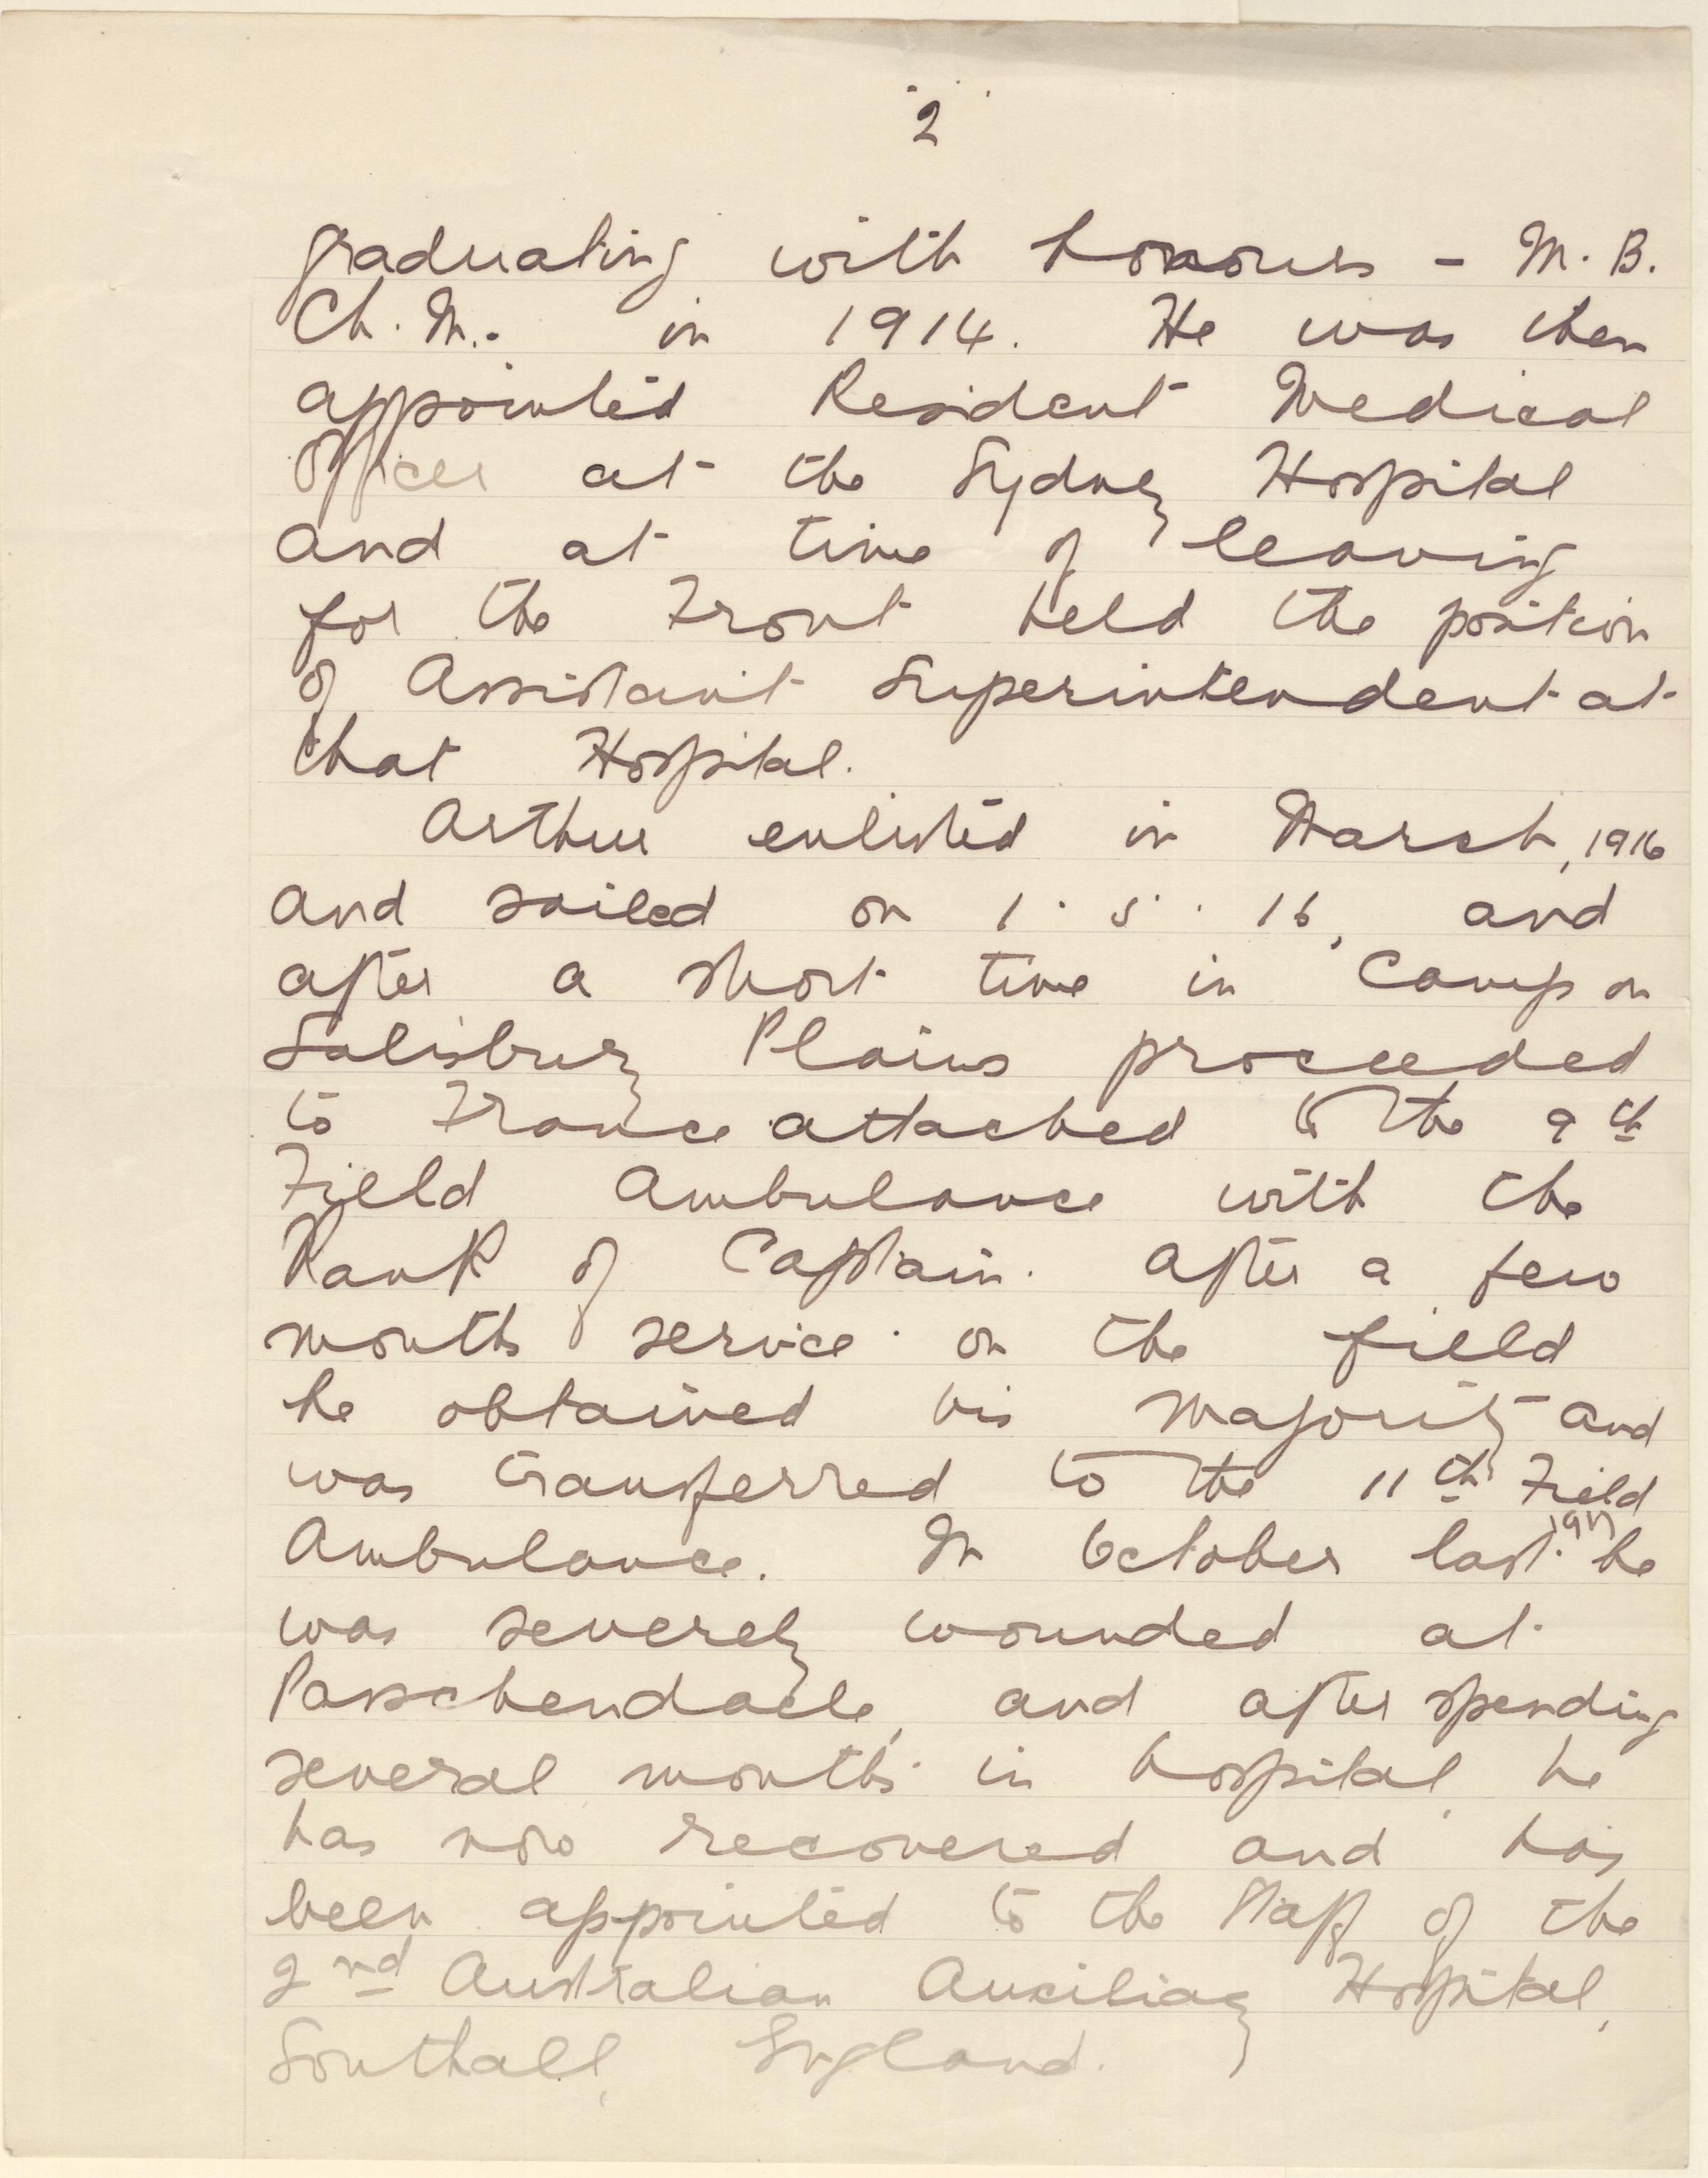 2
graduating with honours - M.B.
Ch.M. in 1914. He was then
appointed Resident Medical
Officer at the Sydney Hospital
and at time of leaving
for the Front held the position
of Assistant Superintendent at
that Hospital.
Arthur enlisted in March, 1916
and sailed on 1.5.16, and
after a short time in Camp on
Salisbury Plains proceeded
to France attached to the 9th
Field Ambulance with the
Rank of Captain. After a few
months service on the field
he obtained his majority and
was transferred to the 11th Field
Ambulance. In October last 1917 he
was severely wounded at
Passchendaele, and after spending
several months in hospital, he
has now recovered and has
been appointed to the Staff of the
2nd Australian Auxiliary Hospital,
Southall, England.